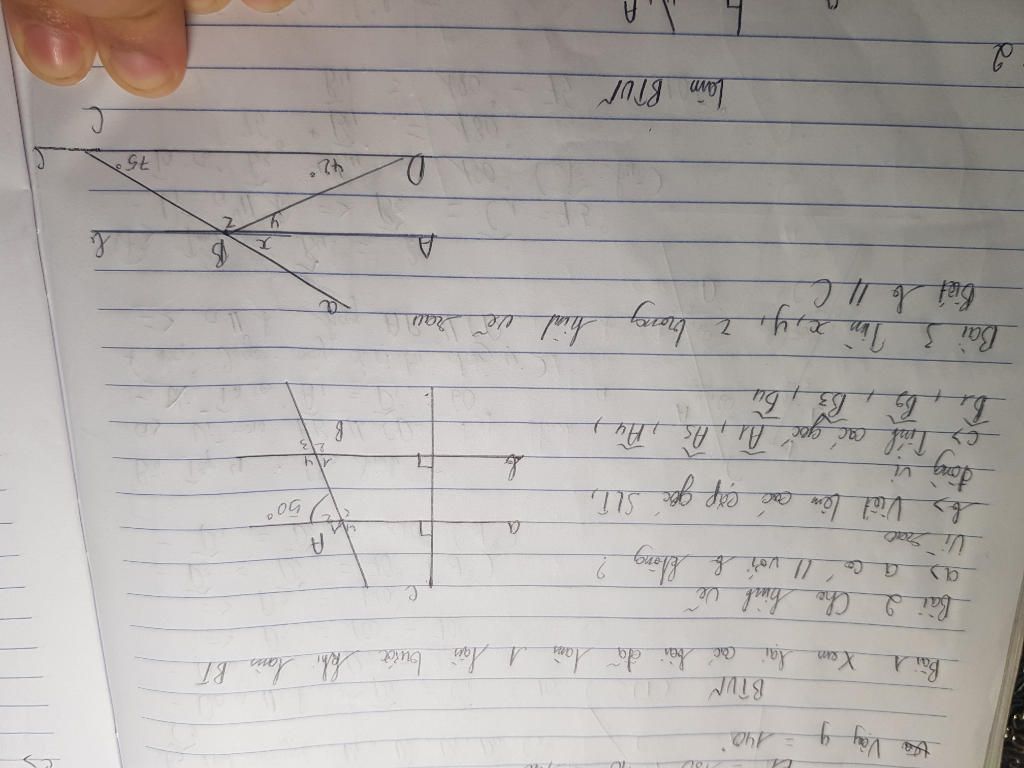 Vậy y = 140°
BTVN
Bài 1 Xem lại các bài đã làm 1 lần trước khi làm BT
Bài 2 Cho hình vẽ
a> a có // với b không?
Vì sao
b> Viết tên các cặp góc SLT,
đồng vị
c> Tính các góc A1, A3, A4,
B1, B2, B3, B4
c
a
A
1
2
4
50°
b
B
1
2
3
4
Bài 3 Tìm x, y, z trong hình vẽ sau
Biết b // C
a
A
B
b
x
y
z
D
42°
75°
C
C
Làm BTVN
2
A